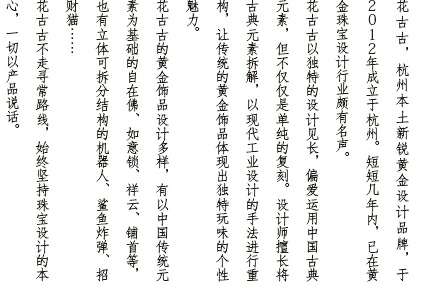 花古古，杭州本土新锐黄金设计品牌，于
2012年成立于杭州。短短几年内，已在黄
金珠宝设计行业颇有名声。
花古古以独特的设计见长，偏爱运用中国古典
元素，但不仅仅是单纯的复刻。设计师擅长将
古典元素拆解，以现代工业设计的手法进行重
构，让传统的黄金饰品体现出独特玩味的个性
魅力。
花古古的黄金饰品设计多样，有以中国传统元
素为基础的自在佛、如意锁、祥云、铺首等，
也有立体可拆分结构的机器人、鲨鱼炸弹、招
财猫……
花古古不走寻常路线，始终坚持珠宝设计的本
心，一切以产品说话。